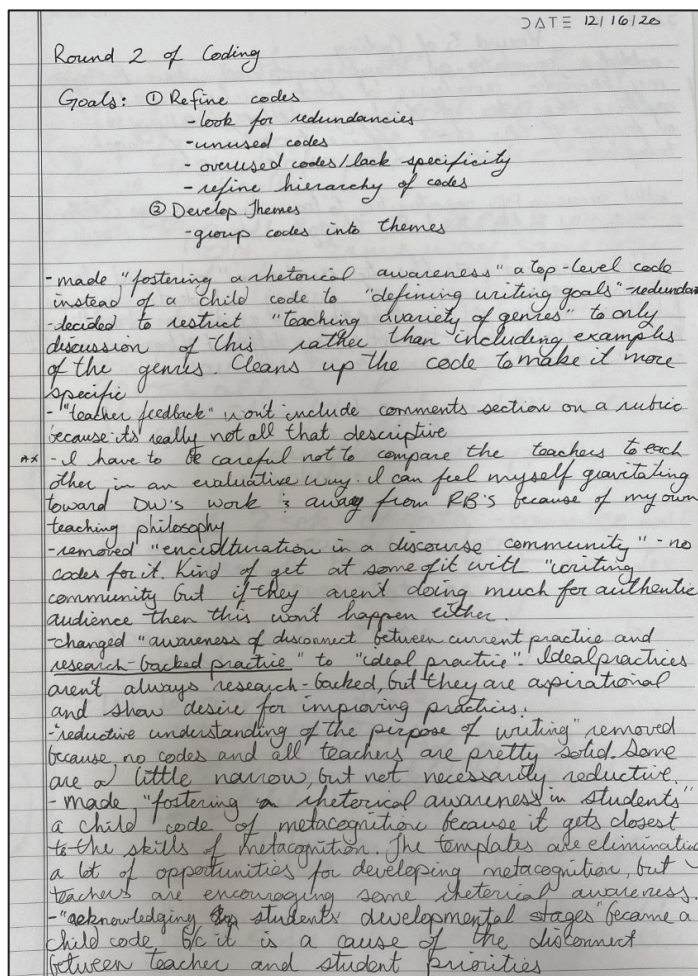 DATE 12/16/20
Round 2 of Coding
Goals: ① Refine codes
- look for redundancies
- unused codes
- overused codes/lack specificity
- refine hierarchy of codes
② Develop Themes
- group codes into themes
- made "fostering a rhetorical awareness" a top-level code
instead of a child code to "defining writing goals" - redundan
- decided to restrict "teaching a variety of genres" to only
discussion of this rather than including examples
of the genres. Cleans up the code to make it more
specific
- "teacher feedback" won't include comments section on a rubric
because it's really not all that descriptive
- I have to be careful not to compare the teachers to each
other in an evaluative way. I can feel myself gravitating
toward DW's work & away from RB's because of my own
teaching philosophy
- removed "enculturation in a discourse community" - no
codes for it. Kind of get at some of it with "writing
community but if they aren't doing much for authentic
audience then this won't happen either.
- changed "awareness of disconnect between current practice and
research-backed practice" to "ideal practice". Ideal practices
aren't always research-backed, but they are aspirational
and show desire for improving practices.
- "reductive understanding of the purpose of writing" removed
because no codes and all teachers are pretty solid. Some
are a little narrow, but not necessarily reductive.
- made "fostering a rhetorical awareness in students"
a child code of metacognition because it gets closest
to the skills of metacognition. The templates are eliminatin
a lot of opportunities for developing metacognition, but
teachers are encouraging some rhetorical awareness.
- "acknowledging students developmental stages" became a
child code, b/c it is a cause of the disconnect
between teacher and student priorities